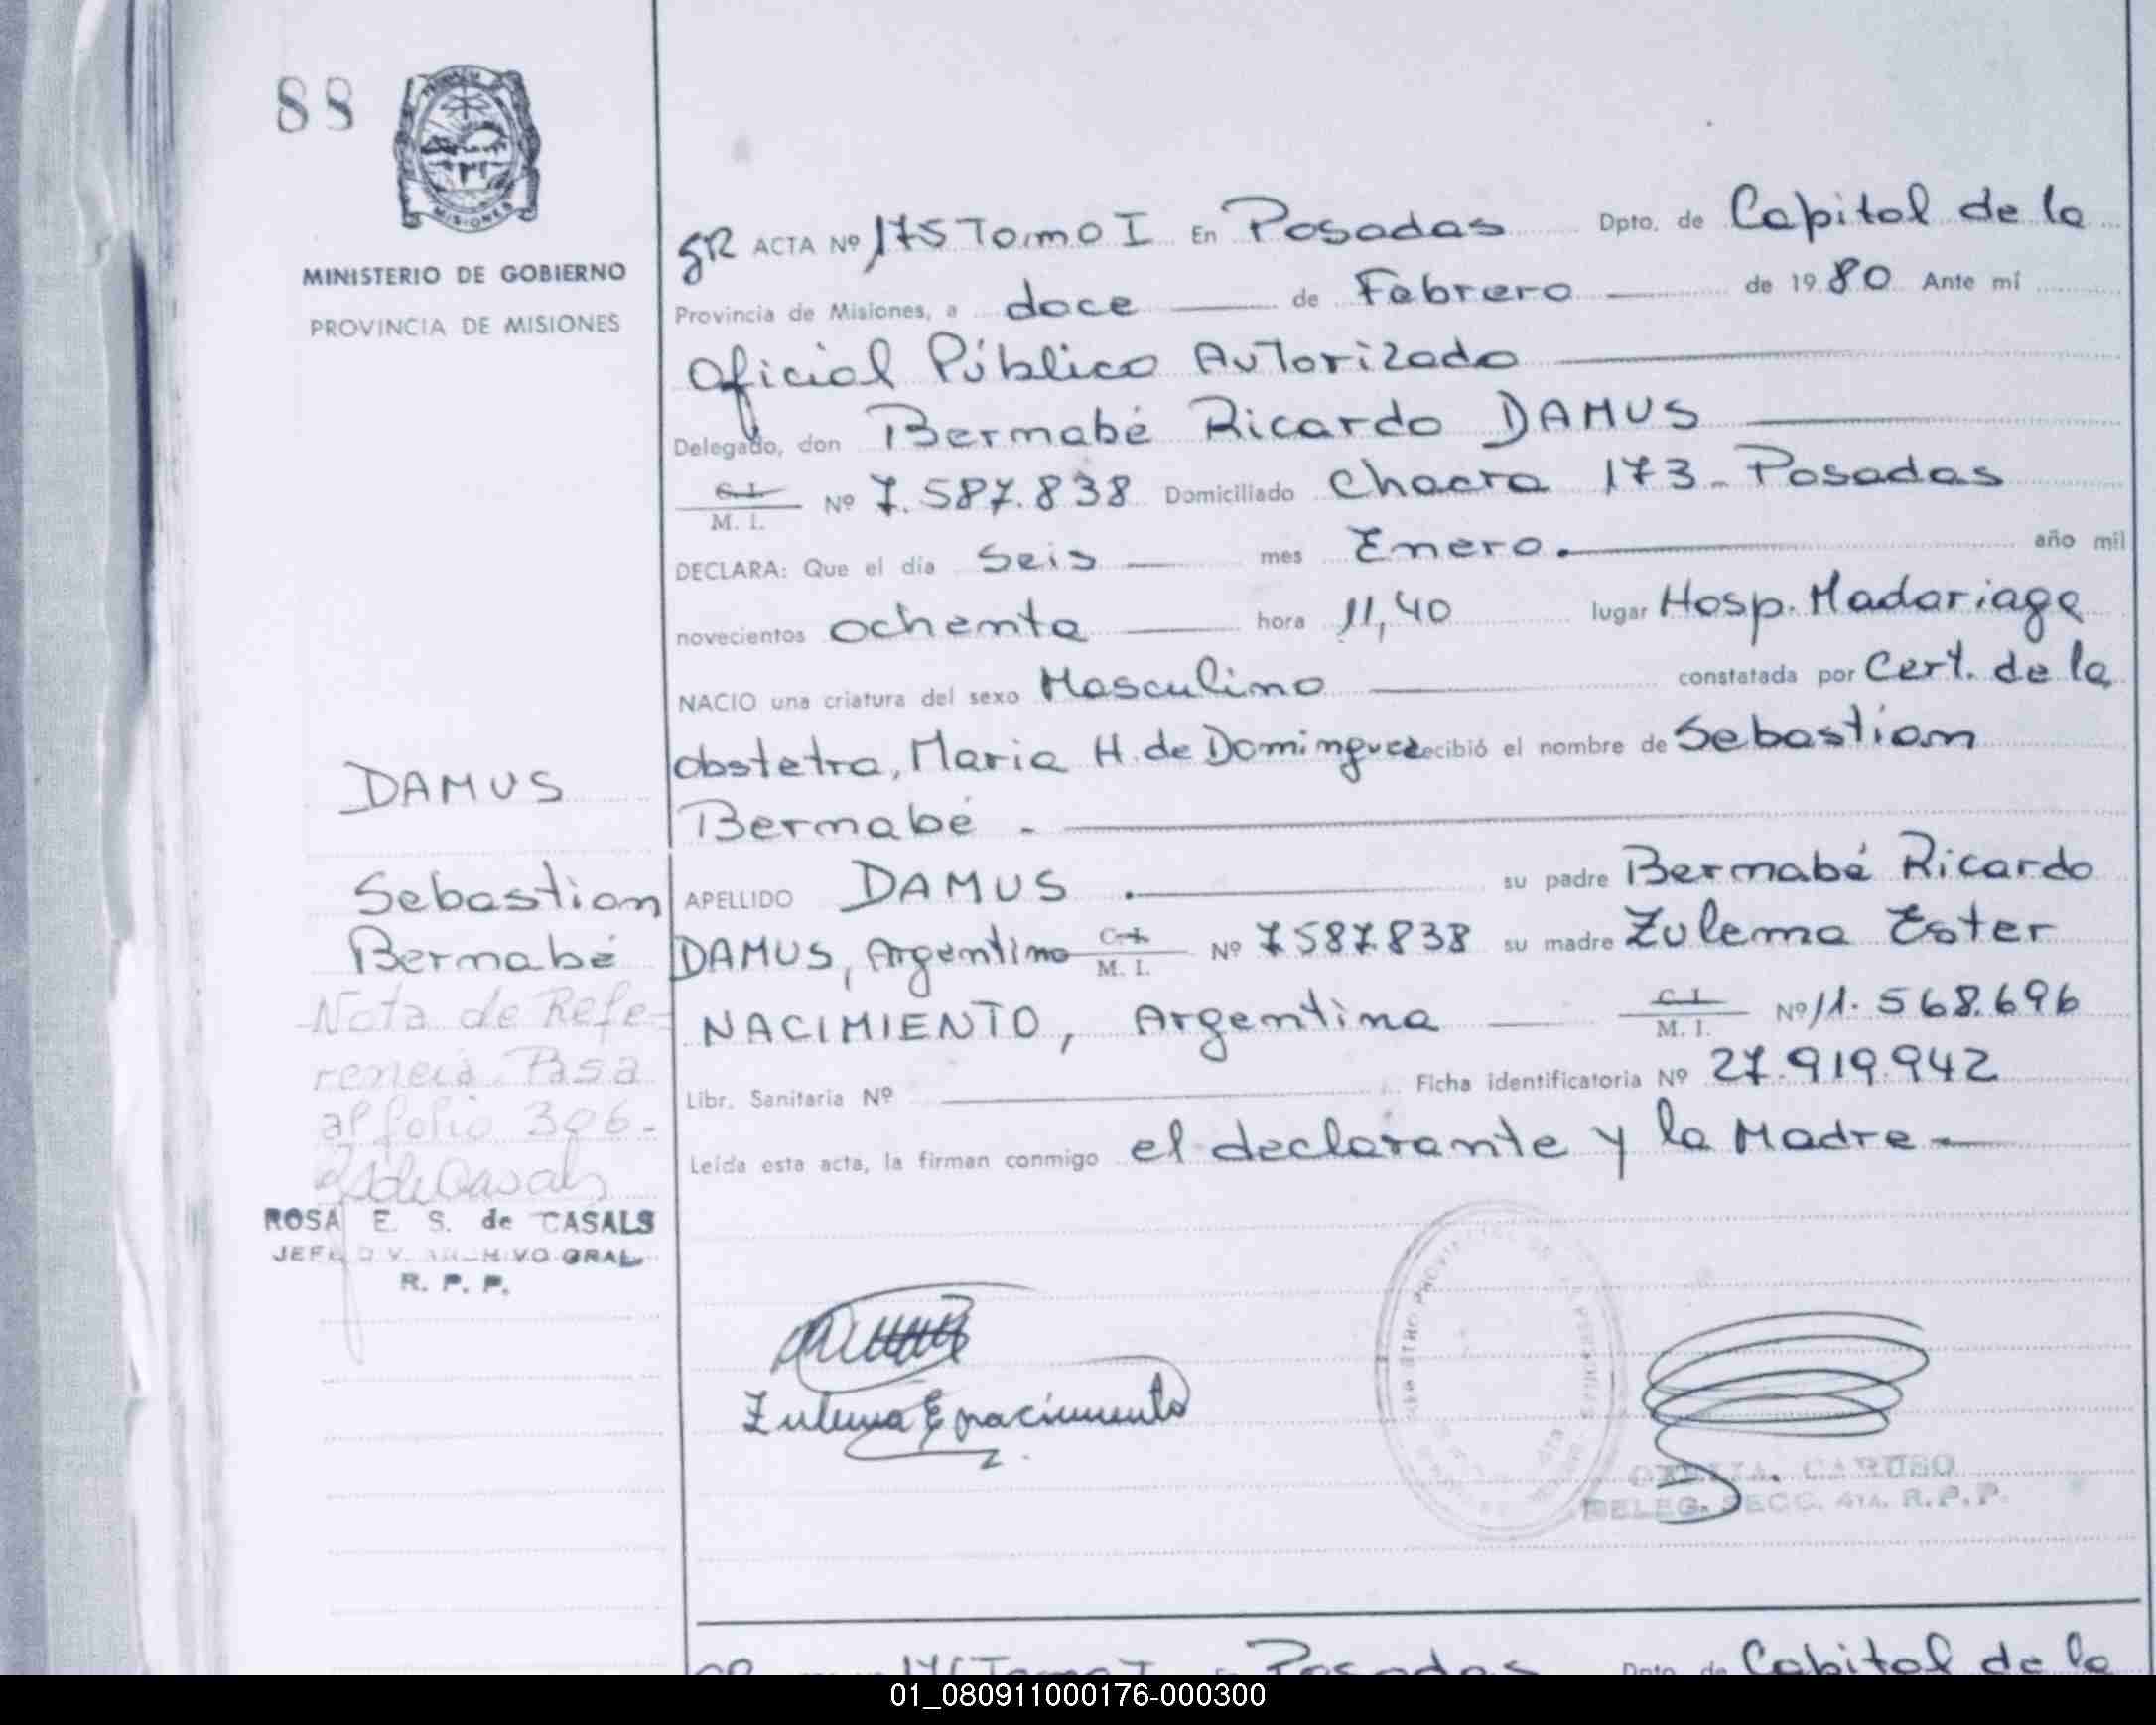 88
MISIONES
MINISTERIO DE GOBIERNO
PROVINCIA DE MISIONES
DAMUS
Sebastian
Bernabé
Nota de Refe-
rencia. Pasa
al folio 306.
ROSA E. S. de CASALS
JEFE DIV. ARCHIVO GRAL.
R. P. P.
SR ACTA Nº 175 Tomo I En Posadas Dpto. de Capital de la
Provincia de Misiones, a doce de Febrero de 19 80 Ante mí
Oficial Público Autorizado
Delegado, don Bernabé Ricardo DAMUS
C. I. M. I. Nº 7.587.838 Domiciliado Chacra 173 - Posadas
DECLARA: Que el día Seis mes Enero. año mil
novecientos ochenta hora 11,40 lugar Hosp. Madariaga
NACIO una criatura del sexo Masculino constatada por Cert. de la
obstetra, Maria H. de Dominguez recibió el nombre de Sebastian
Bernabé .
APELLIDO DAMUS . su padre Bernabé Ricardo
DAMUS, Argentino C. I. M. I. Nº 7587.838 su madre Zulema Ester
NACIMIENTO, Argentina C. I. M. I. Nº 11.568.696
Libr. Sanitaria Nº Ficha identificatoria Nº 27.919.942
Leída esta acta, la firman conmigo el declarante y la Madre
Zulema E Nacimiento
CARUSO
DELEG. SECC. 4ta. R.P.P.
Posadas Dpto. de Capital de la
01_080911000176-000300